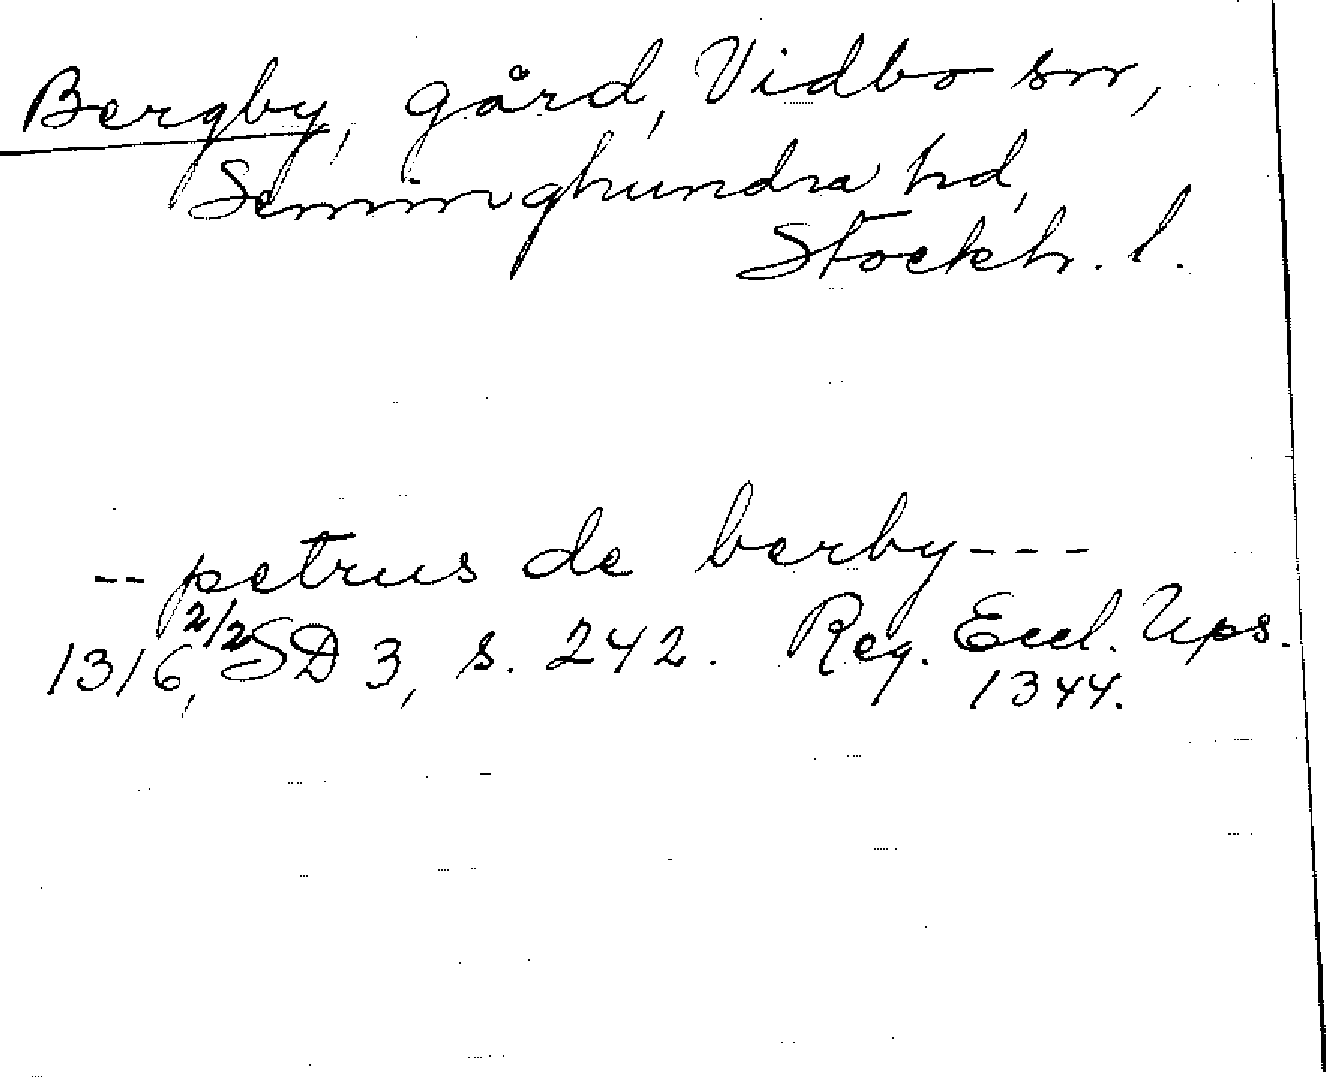 Bergby, gård, Vidbo sn,
Seminghundra hd,
Stockh. l.
-- petrus de berby ---
1316 2/2, SD 3, s. 242. Reg. Eccl. Ups.
1344.